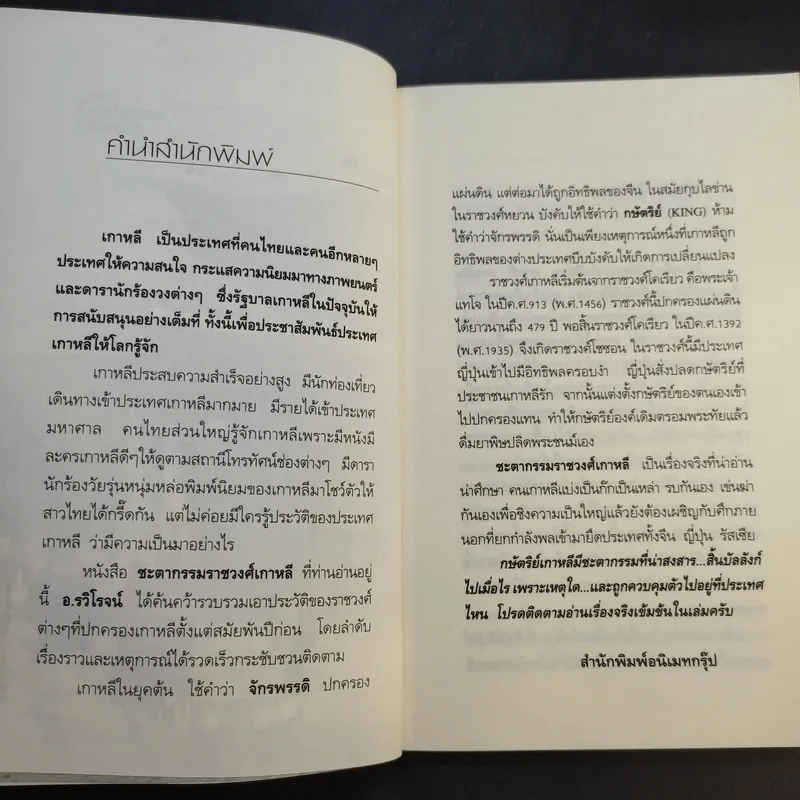 คำนำสำนักพิมพ์
เกาหลี เป็นประเทศที่คนไทยและคนอีกหลายๆ
ประเทศให้ความสนใจ กระแสความนิยมมาทางภาพยนตร์
และดารานักร้องวงต่างๆ ซึ่งรัฐบาลเกาหลีในปัจจุบันให้
การสนับสนุนอย่างเต็มที่ ทั้งนี้เพื่อประชาสัมพันธ์ประเทศ
เกาหลีให้โลกรู้จัก
เกาหลีประสบความสำเร็จอย่างสูง มีนักท่องเที่ยว
เดินทางเข้าประเทศเกาหลีมากมาย มีรายได้เข้าประเทศ
มหาศาล คนไทยส่วนใหญ่รู้จักเกาหลีเพราะมีหนังมี
ละครเกาหลีดีๆให้ดูตามสถานีโทรทัศน์ช่องต่างๆ มีดารา
นักร้องวัยรุ่นหนุ่มหล่อพิมพ์นิยมของเกาหลีมาโชว์ตัวให้
สาวไทยได้กรี๊ดกัน แต่ไม่ค่อยมีใครรู้ประวัติของประเทศ
เกาหลี ว่ามีความเป็นมาอย่างไร
หนังสือ ชะตากรรมราชวงศ์เกาหลี ที่ท่านอ่านอยู่
นี้ อ.รวิโรจน์ ได้ค้นคว้ารวบรวมเอาประวัติของราชวงศ์
ต่างๆที่ปกครองเกาหลีตั้งแต่สมัยพันปีก่อน โดยลำดับ
เรื่องราวและเหตุการณ์ได้รวดเร็วกระชับชวนติดตาม
เกาหลีในยุคต้น ใช้คำว่า จักรพรรดิ ปกครอง
แผ่นดิน แต่ต่อมาได้ถูกอิทธิพลของจีน ในสมัยกุบไลข่าน
ในราชวงศ์หยวน บังคับให้ใช้คำว่า กษัตริย์ (KING) ห้าม
ใช้คำว่าจักรพรรดิ นั่นเป็นเพียงเหตุการณ์หนึ่งที่เกาหลีถูก
อิทธิพลของต่างประเทศบีบบังคับให้เกิดการเปลี่ยนแปลง
ราชวงศ์เกาหลีเริ่มต้นจากราชวงศ์โคเรียว คือพระเจ้า
แทโจ ในปีค.ศ.913 (พ.ศ.1456) ราชวงศ์นี้ปกครองแผ่นดิน
ได้ยาวนานถึง 479 ปี พอสิ้นราชวงศ์โคเรียว ในปีค.ศ.1392
(พ.ศ.1935) จึงเกิดราชวงศ์โชซอน ในราชวงศ์นี้มีประเทศ
ญี่ปุ่นเข้าไปมีอิทธิพลครอบงำ ญี่ปุ่นสั่งปลดกษัตริย์ที่
ประชาชนเกาหลีรัก จากนั้นแต่งตั้งกษัตริย์ของตนเองเข้า
ไปปกครองแทน ทำให้กษัตริย์องค์เดิมตรอมพระทัยแล้ว
ดื่มยาพิษปลิดพระชนม์เอง
ชะตากรรมราชวงศ์เกาหลี เป็นเรื่องจริงที่น่าอ่าน
น่าศึกษา คนเกาหลีแบ่งเป็นก๊กเป็นเหล่า รบกันเอง เข่นฆ่า
กันเองเพื่อชิงความเป็นใหญ่แล้วยังต้องเผชิญกับศึกภาย
นอกที่ยกกำลังพลเข้ามายึดประเทศทั้งจีน ญี่ปุ่น รัสเซีย
กษัตริย์เกาหลีมีชะตากรรมที่น่าสงสาร...สิ้นบัลลังก์
ไปเมื่อไร เพราะเหตุใด...และถูกควบคุมตัวไปอยู่ที่ประเทศ
ไหน โปรดติดตามอ่านเรื่องจริงเข้มข้นในเล่มครับ
สำนักพิมพ์อนิเมทกรุ๊ป